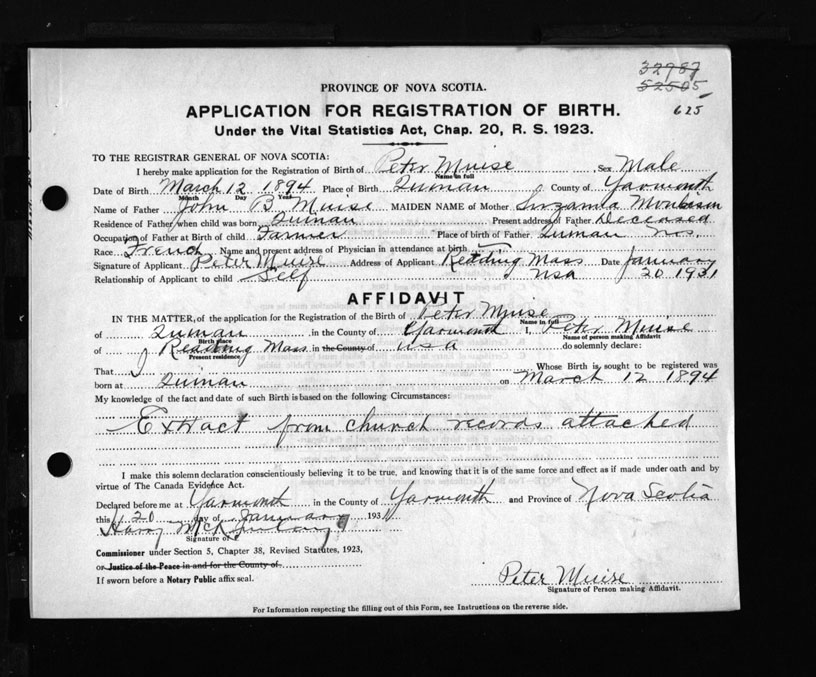 32987
52505
625
PROVINCE OF NOVA SCOTIA.
APPLICATION FOR REGISTRATION OF BIRTH.
Under the Vital Statistics Act, Chap. 20, R. S. 1923.
TO THE REGISTRAR GENERAL OF NOVA SCOTIA:
I hereby make application for the Registration of Birth of Peter Muise Sex Male
Name in full
Date of Birth March 12 1894 Place of Birth Quinan County of Yarmouth
Month Day Year
Name of Father John B Muise MAIDEN NAME of Mother
Residence of Father when child was born Quinan Present address of Father Deceased
Occupation of Father at Birth of child Farmer Place of birth of Father. Quinan N.S.
Race French Name and present address of Physician in attendance at birth
Signature of Applicant Peter Muise Address of Applicant Reading Mass Date January
Relationship of Applicant to child Self USA 20 1931
AFFIDAVIT
IN THE MATTER, of the application for the Registration of the Birth of Peter Muise
Name in full
of Quinan in the County of Yarmouth I, Peter Muise
Birth place Name of person making Affidavit
of Reading Mass in the County of USA do solemnly declare:
Present residence
That I Whose Birth is sought to be registered was
born at Quinan on March 12 1894
My knowledge of the fact and date of such Birth is based on the following Circumstances:
Extract from church records attached
I make this solemn declaration conscientiously believing it to be true, and knowing that it is of the same force and effect as if made under oath and by
virtue of The Canada Evidence Act.
Declared before me at Yarmouth in the County of Yarmouth and Province of Nova Scotia
this 20 day of January 1931
Harry
Signature of
Commissioner under Section 5, Chapter 38, Revised Statutes, 1923,
or Justice of the Peace in and for the County of
If sworn before a Notary Public affix seal.
Peter Muise
Signature of Person making Affidavit.
For Information respecting the filling out of this Form, see Instructions on the reverse side.